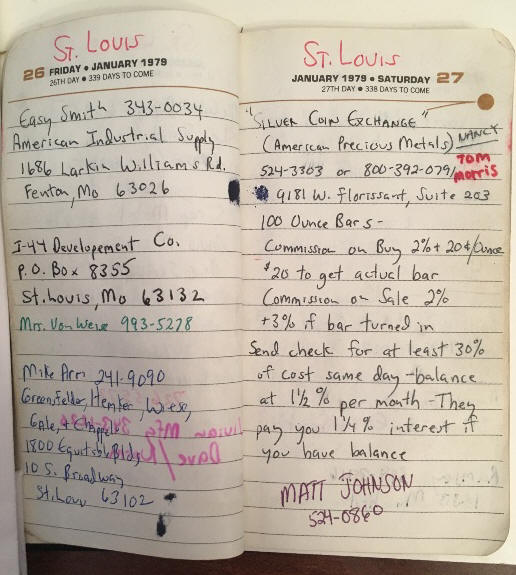 St. Louis
26 FRIDAY • JANUARY 1979
26TH DAY • 339 DAYS TO COME
Easy Smith 343-0034
American Industrial Supply
1686 Larkin Williams Rd.
Fenton, Mo 63026
I-44 Developement Co.
P.O. Box 8355
St. Louis, Mo 63132
Mrs. Von Weise 993-5278
Mike Arri 241-9090
Greensfelder, Hemker Wiese,
Gale, + Chappelow
1800 Equitable Bldg
10 S. Broadway
St. Louis 63102
St. Louis
JANUARY 1979 • SATURDAY 27
27TH DAY • 338 DAYS TO COME
"SILVER COIN EXCHANGE"
(American Precious Metals) NANCY
524-3303 or 800-392-079 TOM
Morris
9181 W. Florissant, Suite 203
100 Ounce Bars -
Commission on Buy 2% + 20¢/Ounce
$20 to get actual bar
Commission on Sale 2%
+3% if bar turned in
Send check for at least 30%
of cost same day - balance
at 1½% per month - They
pay you 1¼% interest if
you have balance
MATT JOHNSON
524-0860